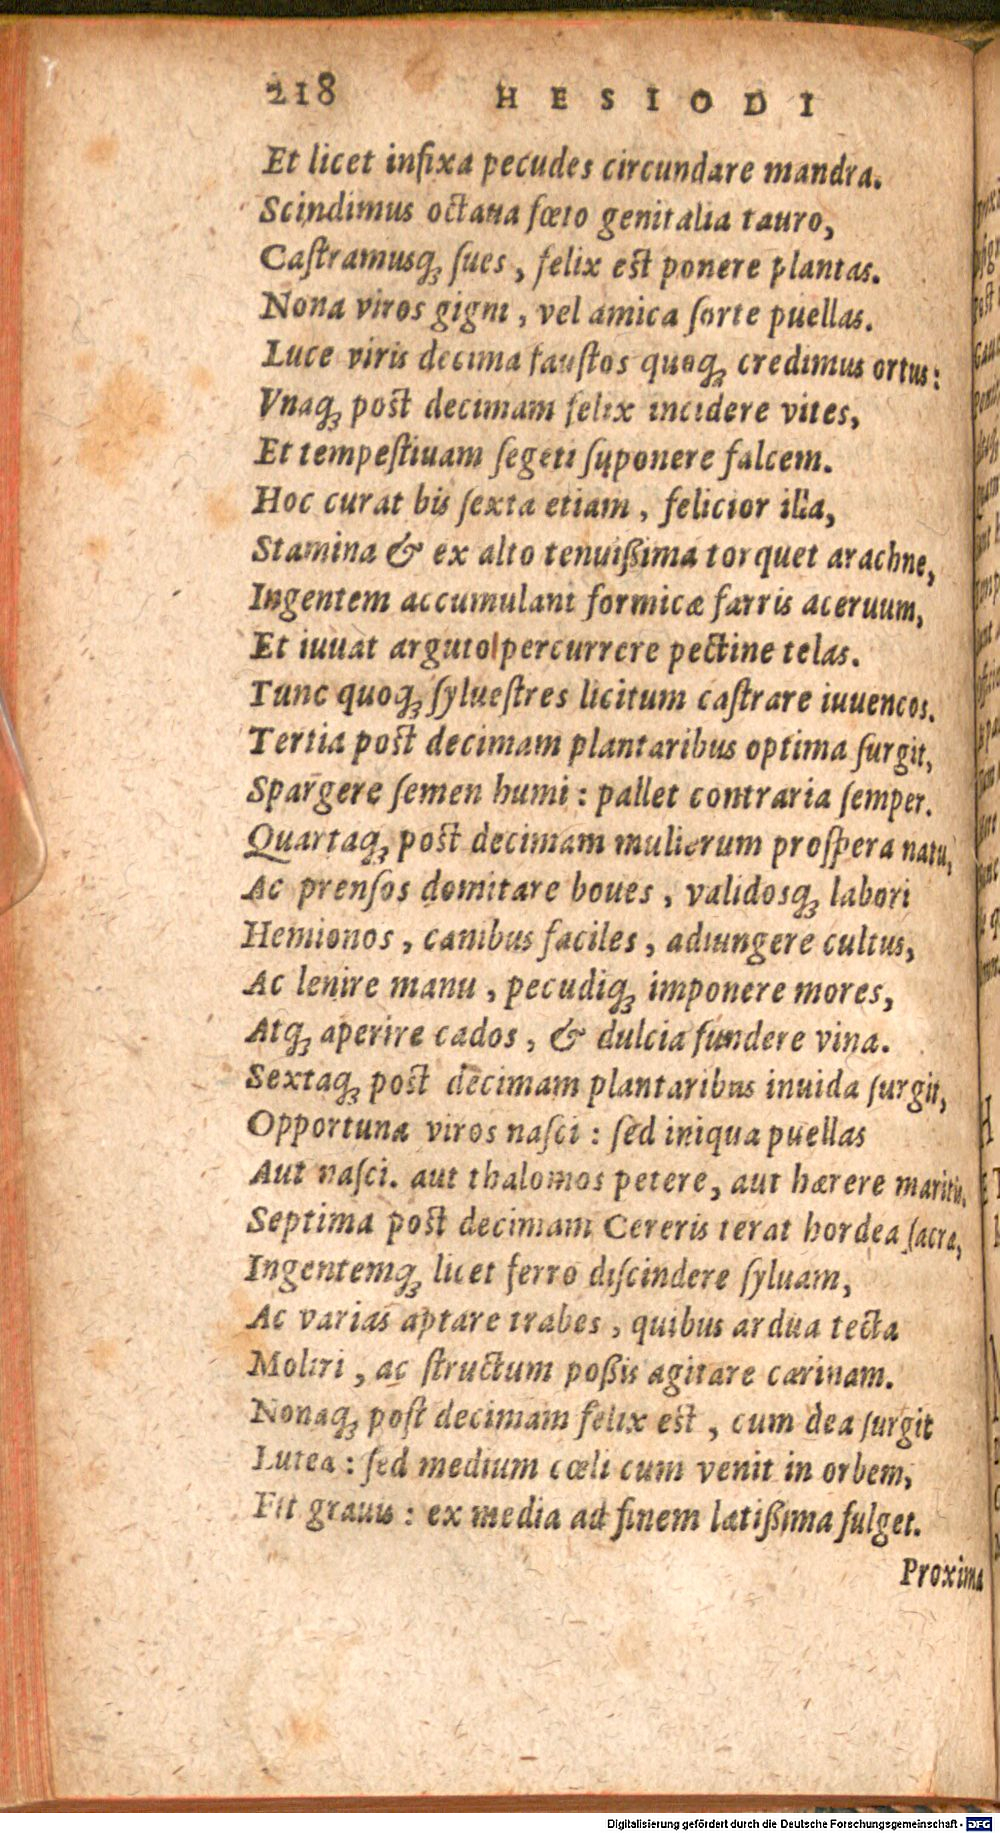 218 HESIODI
Et licet infixa pecudes circundare mandra.
Scindimus octaua fœto genitalia tauro,
Caſtramusq́ꝫ ſues, felix eſt ponere plantas.
Nona viros gigni, vel amica ſorte puellas.
Luce viris decima fauſtos quoqꝫ credimus ortus:
Vnaqꝫ poſt decimam felix incidere vites,
Et tempeſtiuam ſegeti ſuponere falcem.
Hoc curat bis ſexta etiam, felicior illa,
Stamina & ex alto tenuißima torquet arachne,
Ingentem accumulant formicæ farris aceruum,
Et iuuat arguto percurrere pectine telas.
Tunc quoqꝫ ſylueſtres licitum caſtrare iuuencos.
Tertia poſt decimam plantaribus optima ſurgit,
Spargere ſemen humi: pallet contraria ſemper.
Quartaqꝫ poſt decimam mulierum proſpera natu,
Ac prenſos domitare boues, validosqꝫ labori
Hemionos, canibus faciles, adiungere cultus,
Ac lenire manu, pecudiqꝫ imponere mores,
Atqꝫ aperire cados, & dulcia fundere vina.
Sextaqꝫ poſt decimam plantaribus inuida ſurgit,
Opportuna viros naſci: ſed iniqua puellas
Aut naſci. aut thalomos petere, aut hærere maritis.
Septima poſt decimam Cereris terat hordea ſacra,
Ingentemqꝫ licet ferro diſcindere ſyluam,
Ac varias aptare trabes, quibus ardua tecta
Moliri, ac ſtructum poßis agitare carinam.
Nonaqꝫ poſt decimam felix eſt, cum dea ſurgit
Lutea: ſed medium cœli cum venit in orbem,
Fit grauis: ex media ad finem lætißima fulget.
Proxima
Digitalisierung gefördert durch die Deutsche Forschungsgemeinschaft - DFG